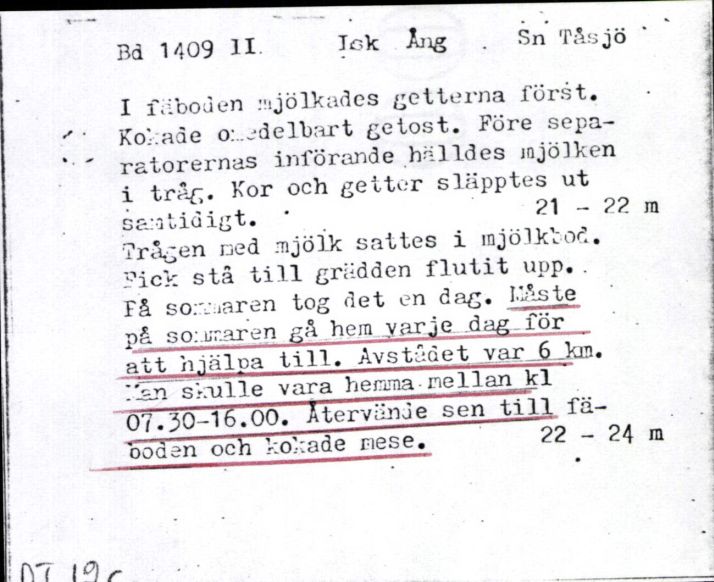 Bd 1409 II. Isk Ång Sn Tåsjö
I fäboden mjölkades getterna först.
Kokade omedelbart getost. Före sepa-
ratorernas införande hälldes mjölken
i tråg. Kor och getter släpptes ut
samtidigt. 21 - 22 m
Trågen med mjölk sattes i mjölkbod.
Fick stå till grädden flutit upp.
På sommaren tog det en dag. Måste
på sommaren gå hem varje dag för
att hjälpa till. Avståndet var 6 km.
Man skulle vara hemma mellan kl
07.30-16.00. Återvände sen till fä-
boden och kokade mese. 22 - 24 m